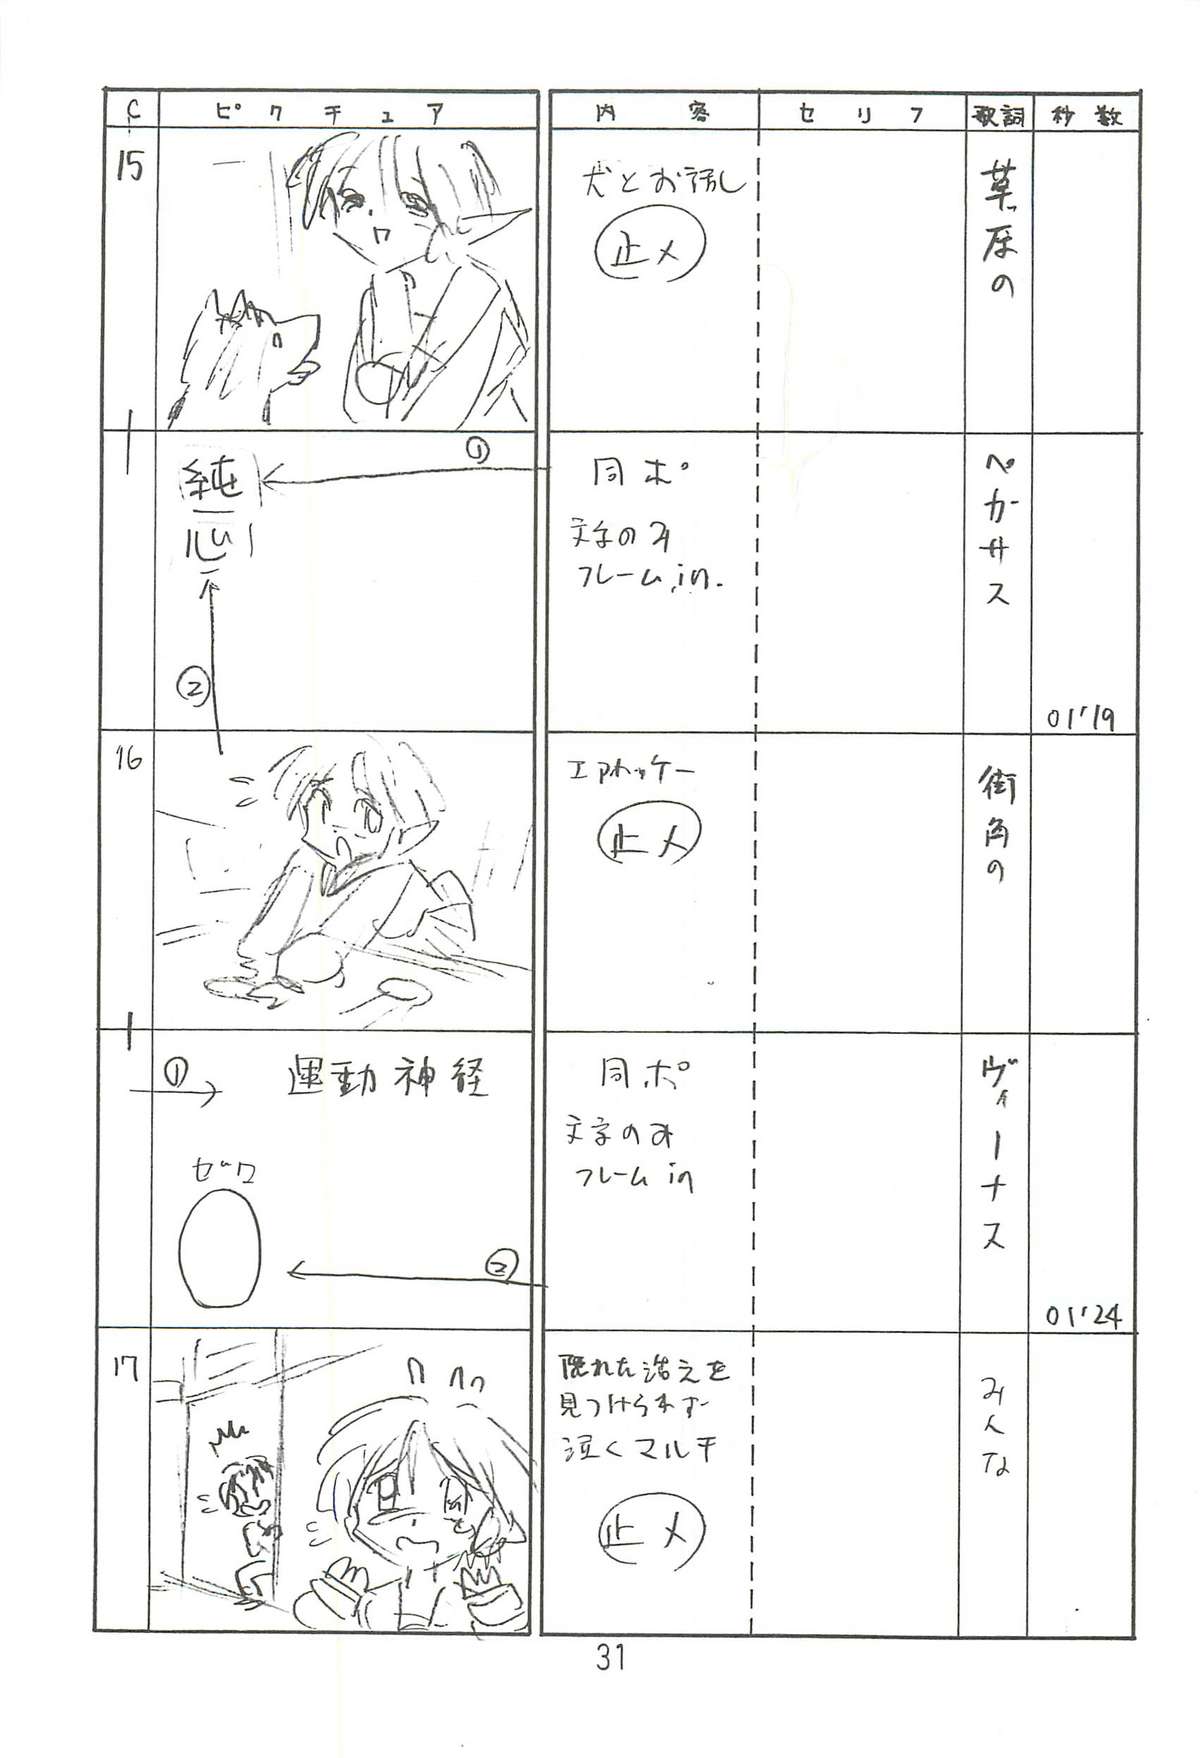 C ピクチュア 内容 セリフ 歌詞 秒数
15
犬とお話し
止メ
草原の
純心
①
②
同ポ
文字のみ
フレームin.
ペガサス
01'19
16
エアホッケー
止メ
街角の
①
運動神経
ゼロ
②
同ポ
文字のみ
フレームin
ヴィーナス
01'24
17
隠れた浩之を
見つけられず
泣くマルチ
止メ
みんな
31